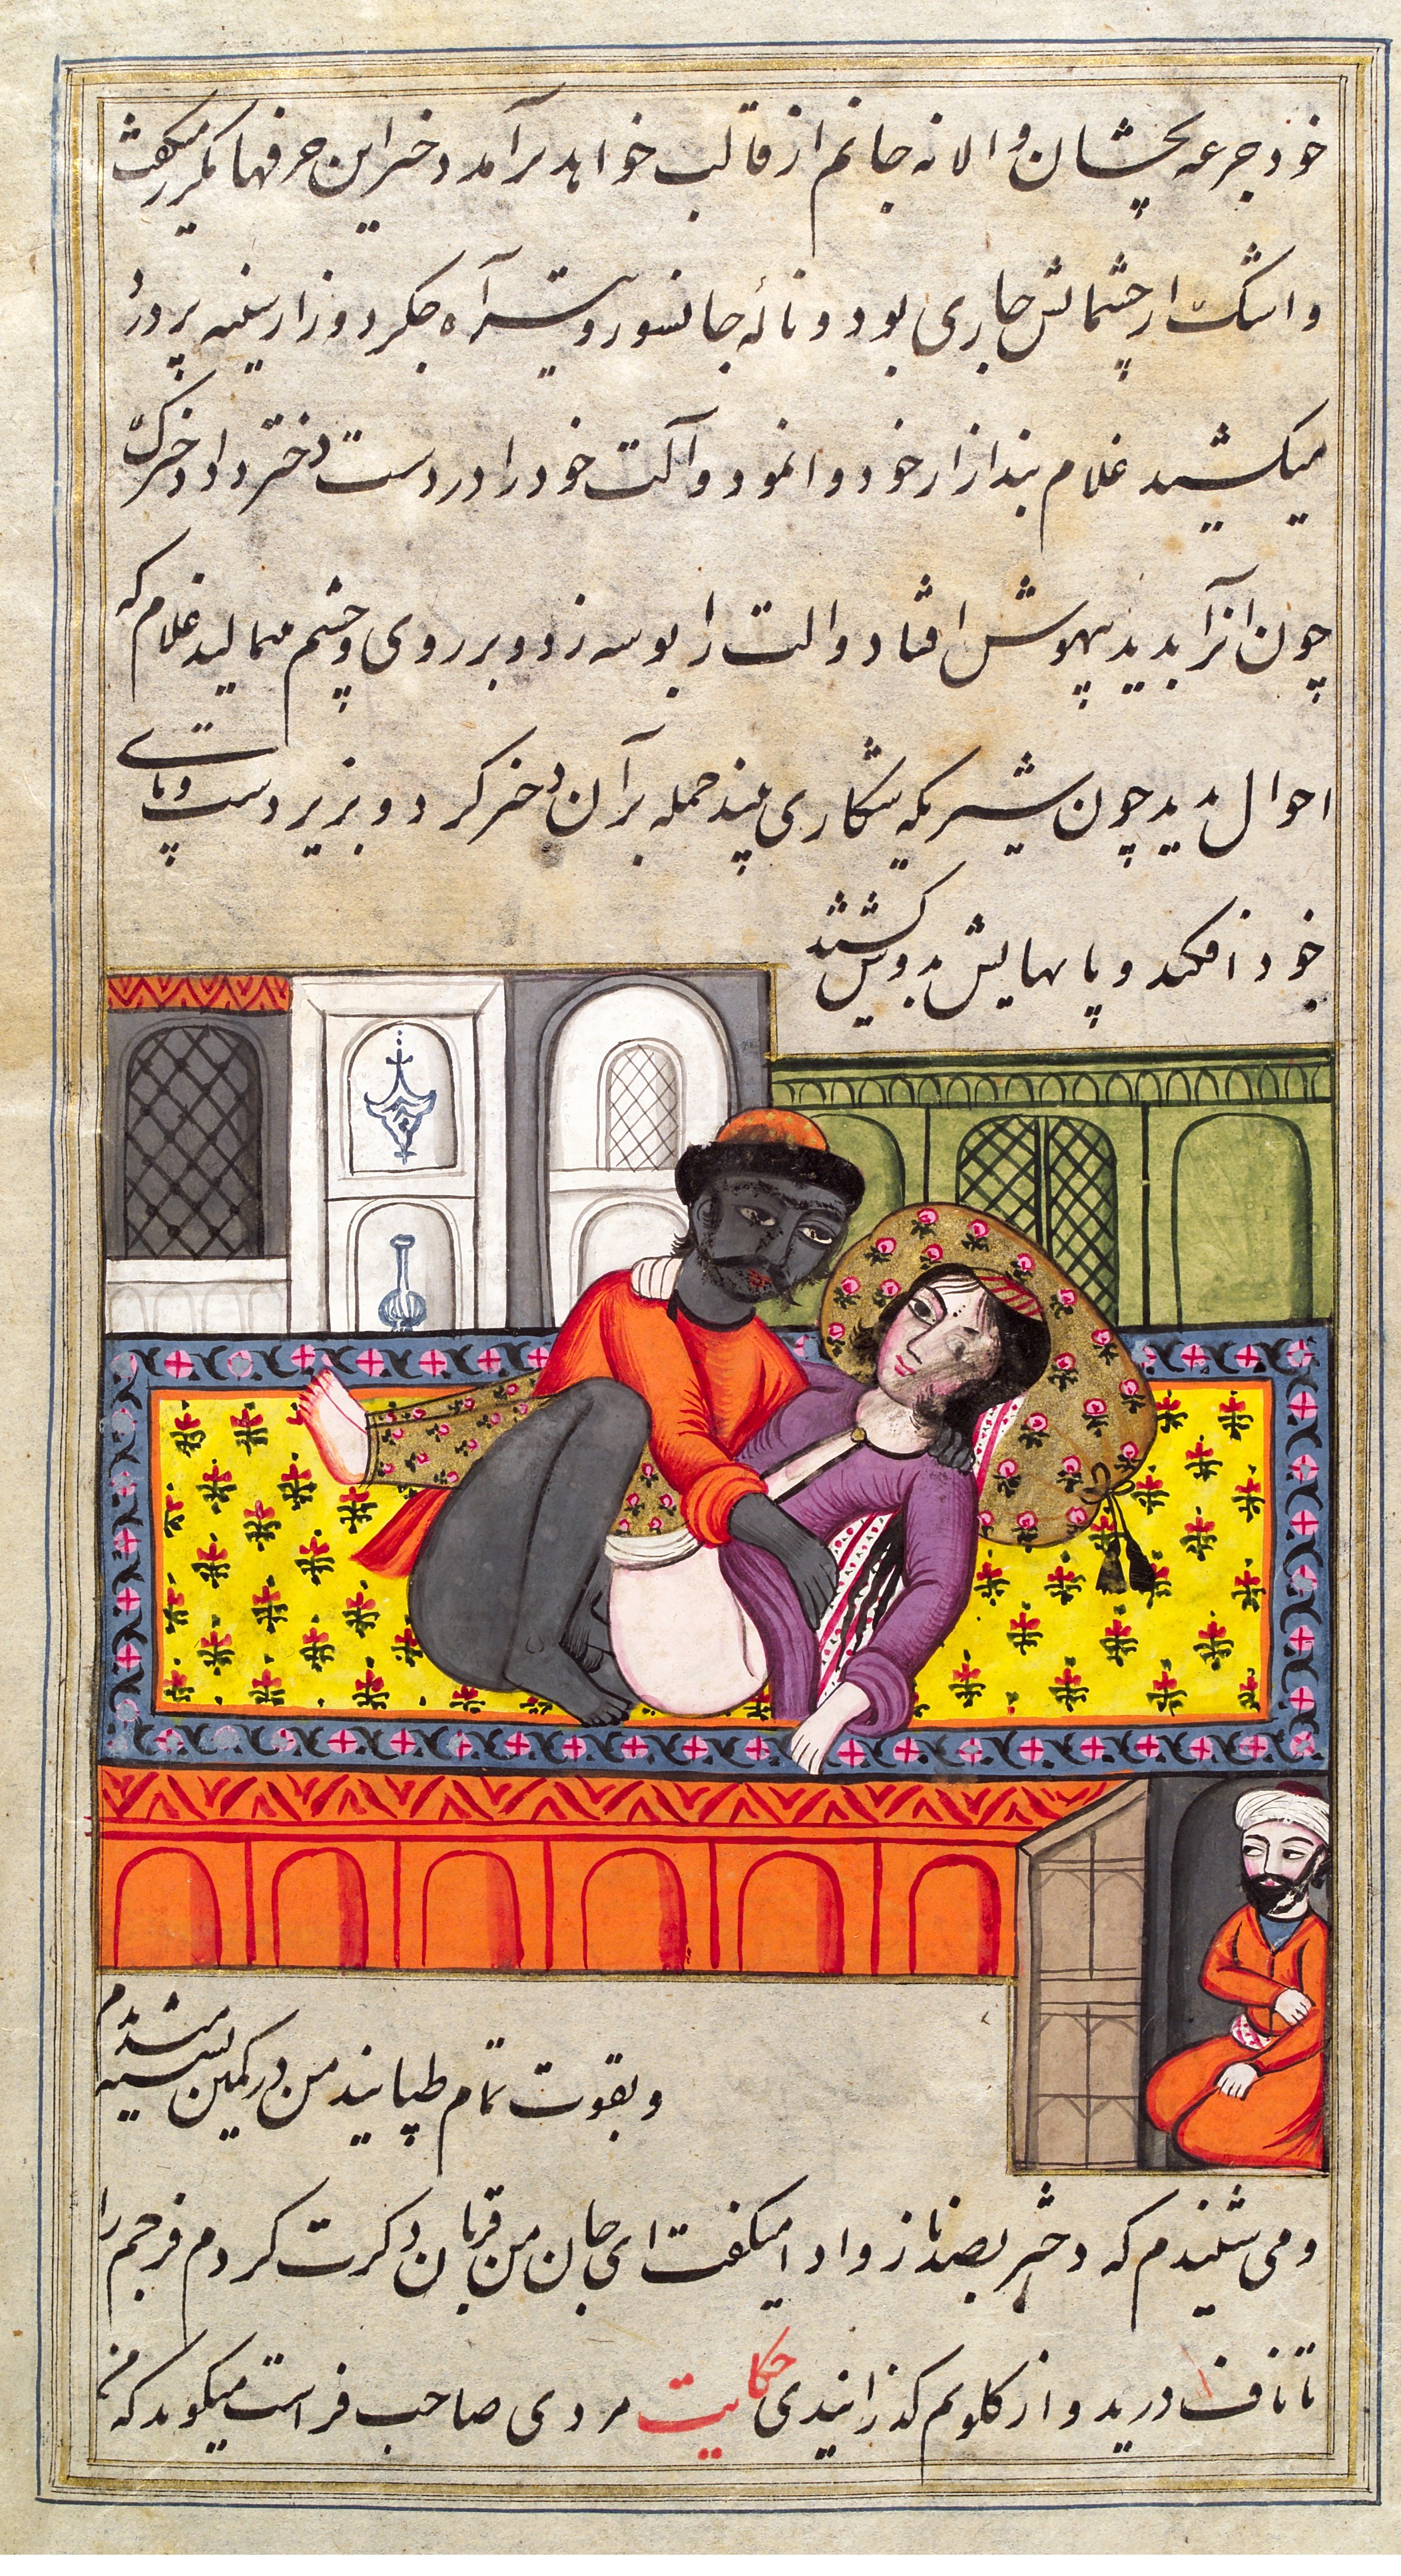 خود جرعه بچشان والا نه جانم از قالب خواهد برآمد دختر این حرفها مکرر میگفت
و اشک از چشمانش جاری بود و ناله جانسوز و آه جگر دوز از سینه پر درد
میکشید غلام بند ازار خود وانمود و آلت خود را در دست دختر داد دخترک
چون آنرا بدید بیهوش افتاد و الت را بوسه زد و بر روی و چشم میمالید غلام که
احوال بدید چون شیریکه شکاری بیند حمله بر آن دختر کرد و بزیر دست و پای
خود افکند و پاهایش بدوش کشید
و بقوت تمام طپانید من در کمین نشسته میدیدم
و می شنیدم که دختر بصد ناز و ادا میگفت ای جان من قربان ذکرت کردم فرجم را
تا ناف درید و از گلویم گذرانیدی حکایت مردی صاحب فراست میگوید که